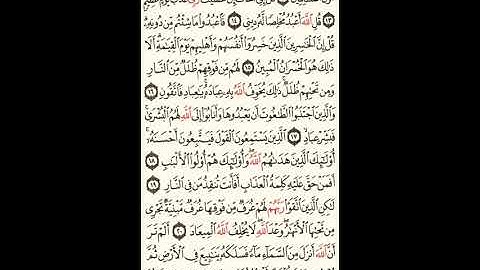 قُلِ ٱللَّهَ أَعۡبُدُ مُخۡلِصٗا لَّهُۥ دِينِي ١٤ فَٱعۡبُدُواْ مَا شِئۡتُم مِّن دُونِهِۦۗ
قُلۡ إِنَّ ٱلۡخَٰسِرِينَ ٱلَّذِينَ خَسِرُوٓاْ أَنفُسَهُمۡ وَأَهۡلِيهِمۡ يَوۡمَ ٱلۡقِيَٰمَةِۗ أَلَا
ذَٰلِكَ هُوَ ٱلۡخُسۡرَانُ ٱلۡمُبِينُ ١٥ لَهُم مِّن فَوۡقِهِمۡ ظُلَلٞ مِّنَ ٱلنَّارِ
وَمِن تَحۡتِهِمۡ ظُلَلٞۚ ذَٰلِكَ يُخَوِّفُ ٱللَّهُ بِهِۦ عِبَادَهُۥۚ يَٰعِبَادِ فَٱتَّقُونِ ١٦
وَٱلَّذِينَ ٱجۡتَنَبُواْ ٱلطَّٰغُوتَ أَن يَعۡبُدُوهَا وَأَنَابُوٓاْ إِلَى ٱللَّهِ لَهُمُ ٱلۡبُشۡرَىٰۚ
فَبَشِّرۡ عِبَادِ ١٧ ٱلَّذِينَ يَسۡتَمِعُونَ ٱلۡقَوۡلَ فَيَتَّبِعُونَ أَحۡسَنَهُۥٓۚ
أُوْلَٰٓئِكَ ٱلَّذِينَ هَدَىٰهُمُ ٱللَّهُۖ وَأُوْلَٰٓئِكَ هُمۡ أُوْلُواْ ٱلۡأَلۡبَٰبِ ١٨
أَفَمَنۡ حَقَّ عَلَيۡهِ كَلِمَةُ ٱلۡعَذَابِ أَفَأَنتَ تُنقِذُ مَن فِي ٱلنَّارِ ١٩
لَٰكِنِ ٱلَّذِينَ ٱتَّقَوۡاْ رَبَّهُمۡ لَهُمۡ غُرَفٞ مِّن فَوۡقِهَا غُرَفٞ مَّبۡنِيَّةٞ تَجۡرِي
مِن تَحۡتِهَا ٱلۡأَنۡهَٰرُۖ وَعۡدَ ٱللَّهِ لَا يُخۡلِفُ ٱللَّهُ ٱلۡمِيعَادَ ٢٠ أَلَمۡ تَرَ
أَنَّ ٱللَّهَ أَنزَلَ مِنَ ٱلسَّمَآءِ مَآءٗ فَسَلَكَهُۥ يَنَٰبِيعَ فِي ٱلۡأَرۡضِ ثُمَّ